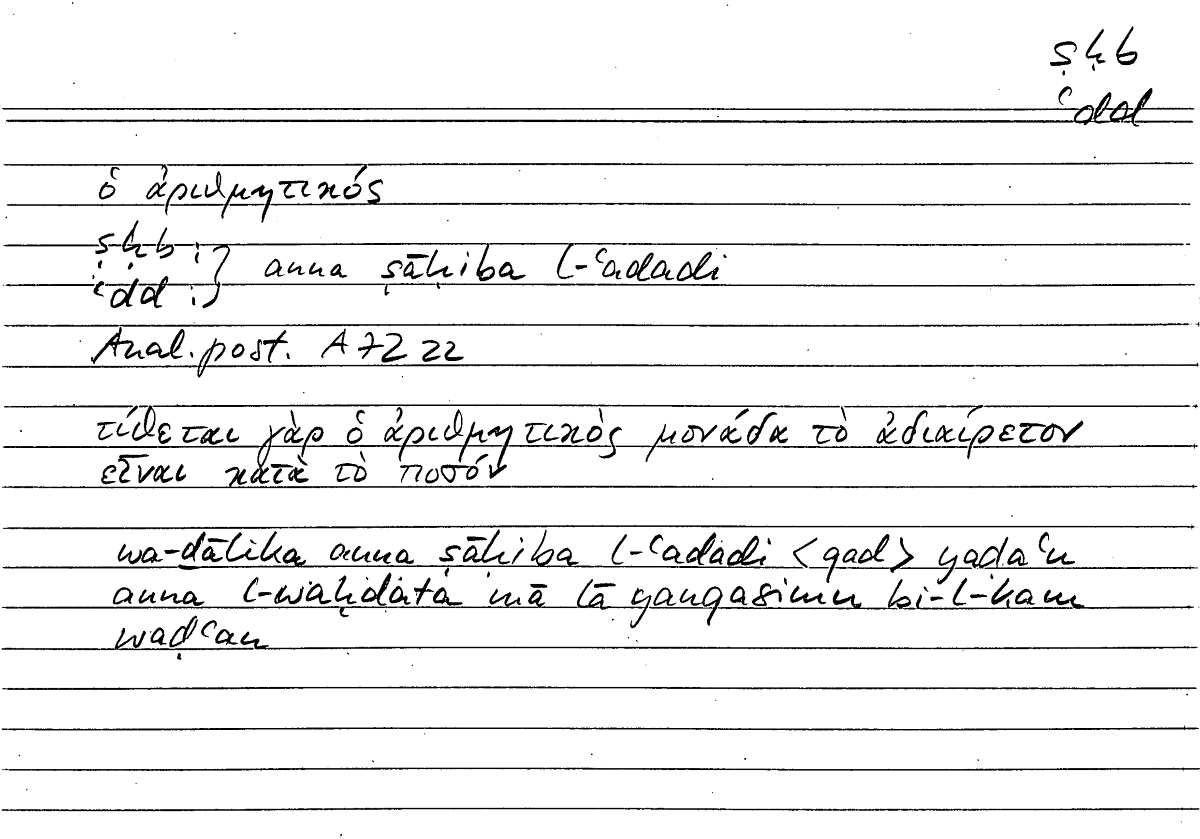 ṣḥb
ʿdd
ὁ ἀριθμητικός
ṣḥb :
ʿdd : } anna ṣāḥiba l-ʿadadi
Anal. post. A 72 22
τίθεται γὰρ ὁ ἀριθμητικὸς μονάδα τὸ ἀδιαίρετον
εἶναι κατὰ τὸ ποσόν
wa-ḏālika anna ṣāḥiba l-ʿadadi <qad> yaḍaʿu
anna l-waḥdata mā lā yanqasimu bi-l-kam
waḍʿan